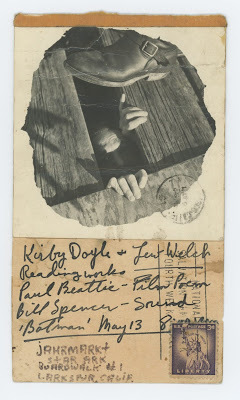 Kirby Doyle + Lew Welch
Reading works
Paul Beattie - Film Poem
Bill Spencer - Sound
'Batman' May 13
JAHRMARKT
STAR ARK
BOARDWALK #1
LARKSPUR, CALIF.
U.S. POSTAGE 3¢
LIBERTY